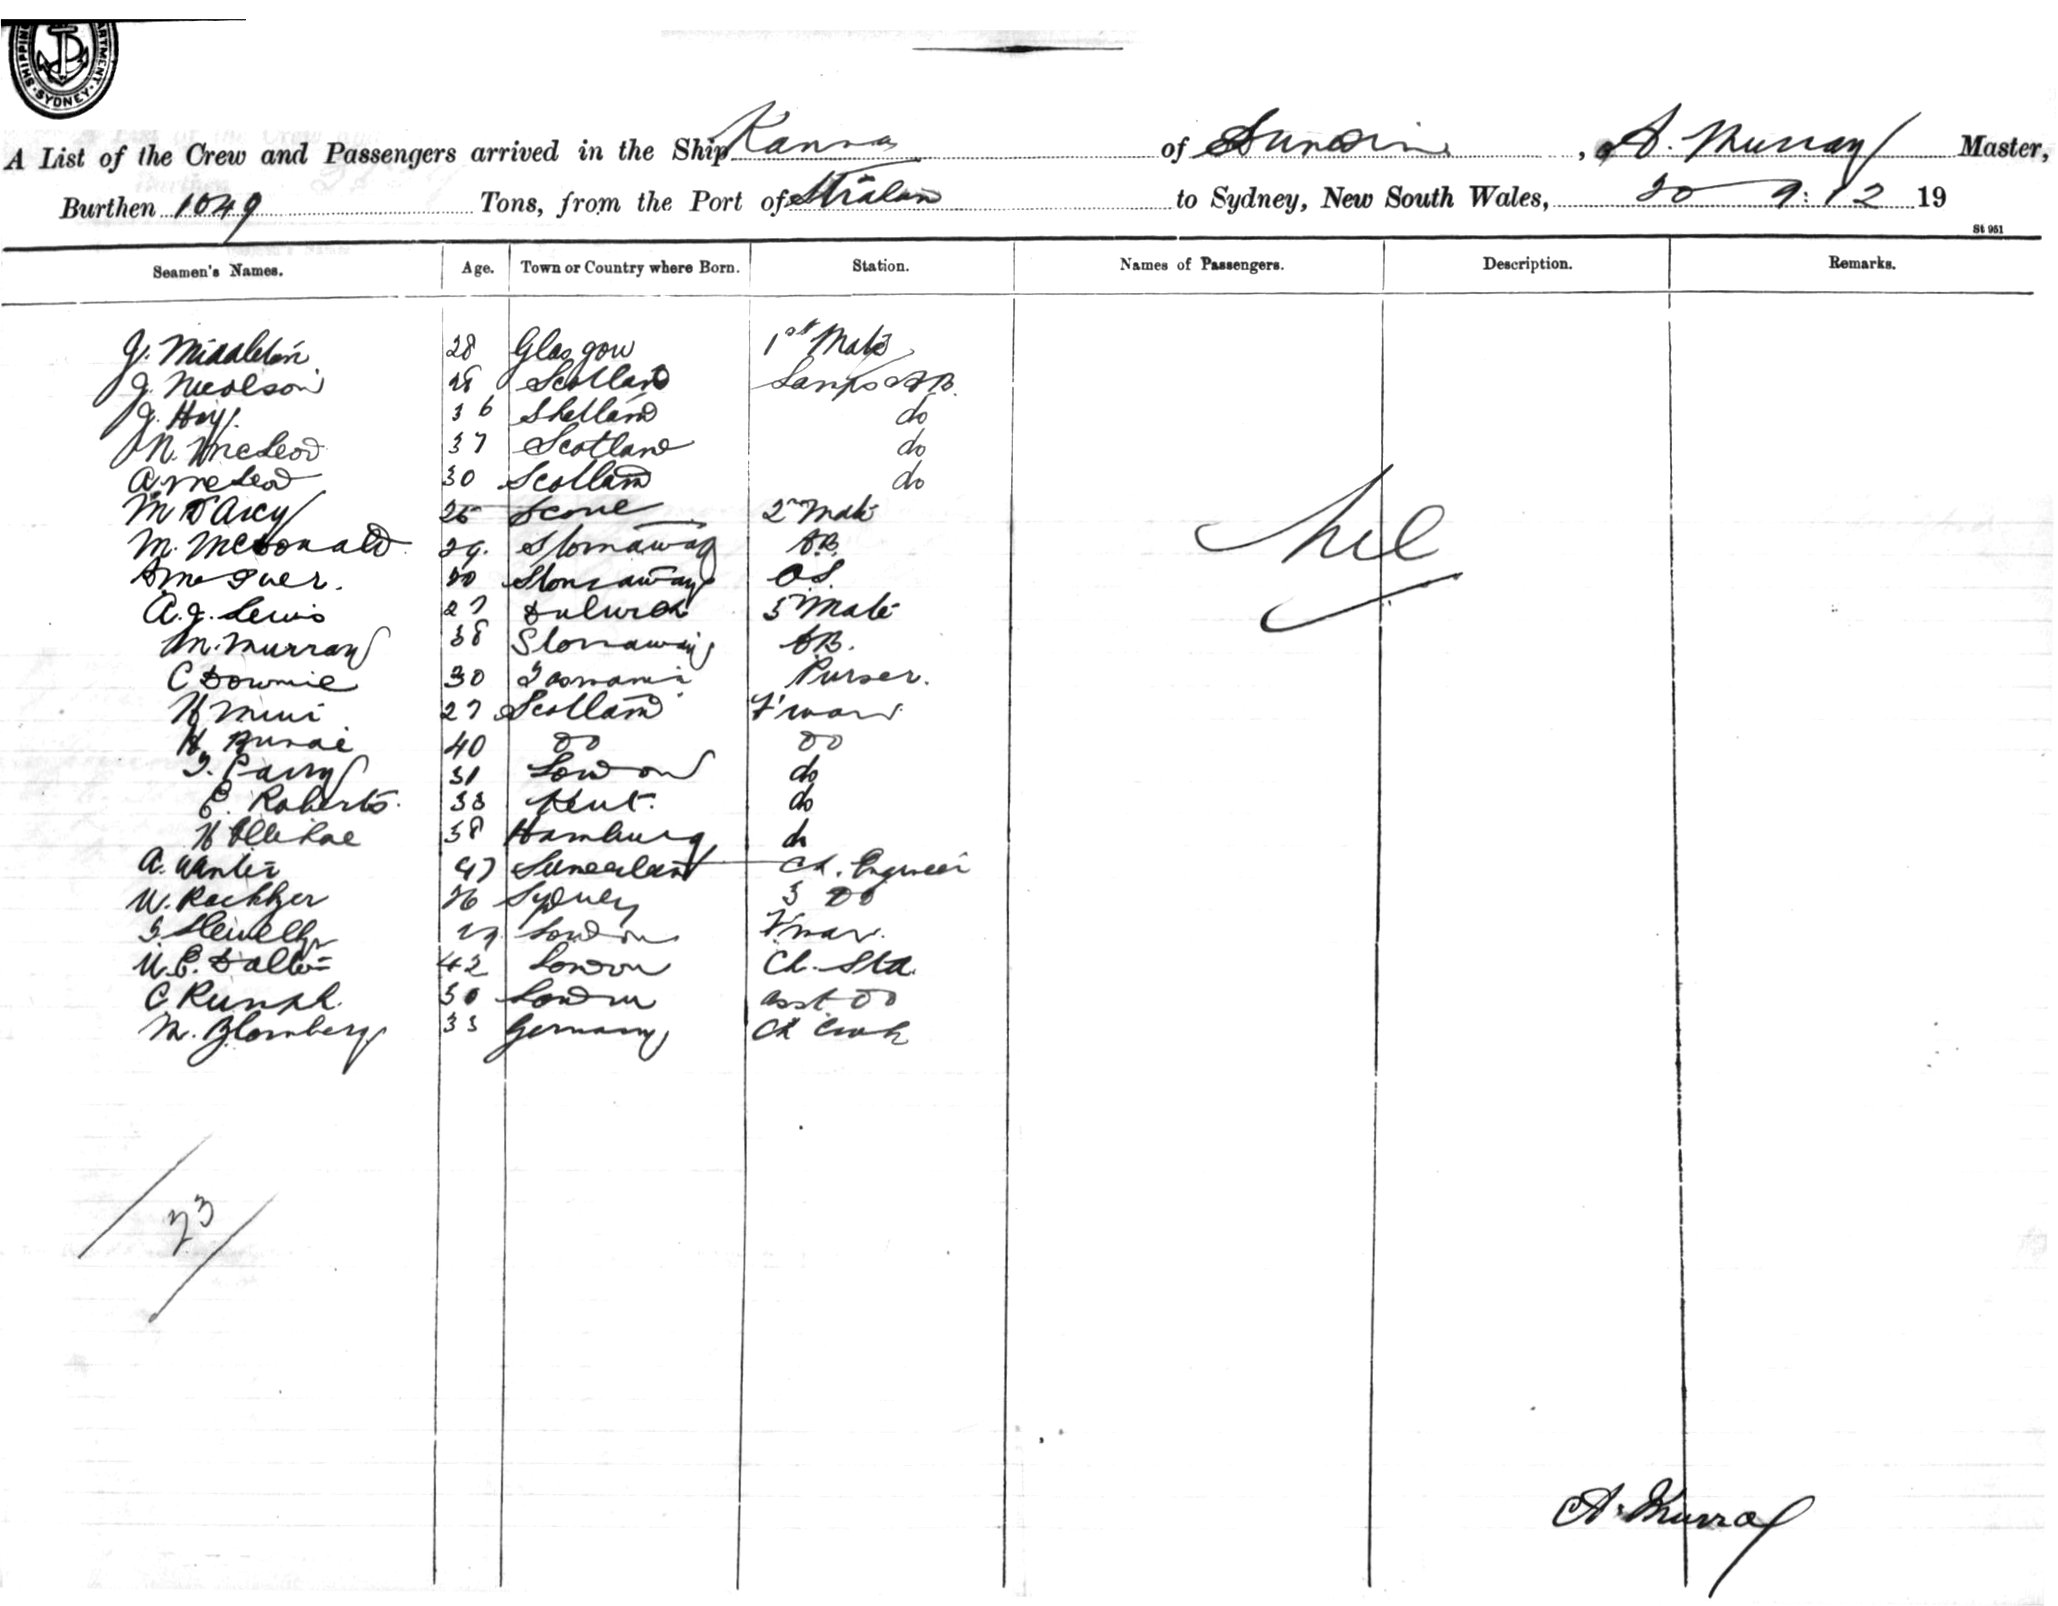 SHIPPING DEPARTMENT. SYDNEY.
A List of the Crew and Passengers arrived in the Ship Kanna of Dunedin, A. Murray Master,
Burthen 1049 Tons, from the Port of Strahan to Sydney, New South Wales, 20 9: 12 19
St 951
Seamen's Names. Age. Town or Country where Born. Station. Names of Passengers. Description. Remarks.
J. Middleton 28 Glasgow 1st Mate
J. Nicolson 28 Scotland Lamps & AB.
J. Hoy. 36 Shetland do
N. McLeod 37 Scotland do
A. McLeod 30 Scotland do
M D'Arcy 25 Scone 2nd Mate
M. McDonald 29. Stornaway AB.
20 Stornaway OS.
A. J. Lewis 27 Dulwich 3 Mate
M. Murray 38 Stornaway AB.
C Downie 30 Tasmania Purser.
27 Scotland F'man
H 40 Do Do
T. Parry 31 London do
E. Roberts. 33 Kent. do
H 38 Hamburg do
A. 47 Sunderland Ch. Engineer
W. 26 Sydney 3 Do
Llewellyn London F'man.
W. E. Dalton 42 London Ch. Std.
C. Rumph. 30 London asst Do
M. Blomberg. 33 Germany Ch Cook
Nil
23
A. Murray